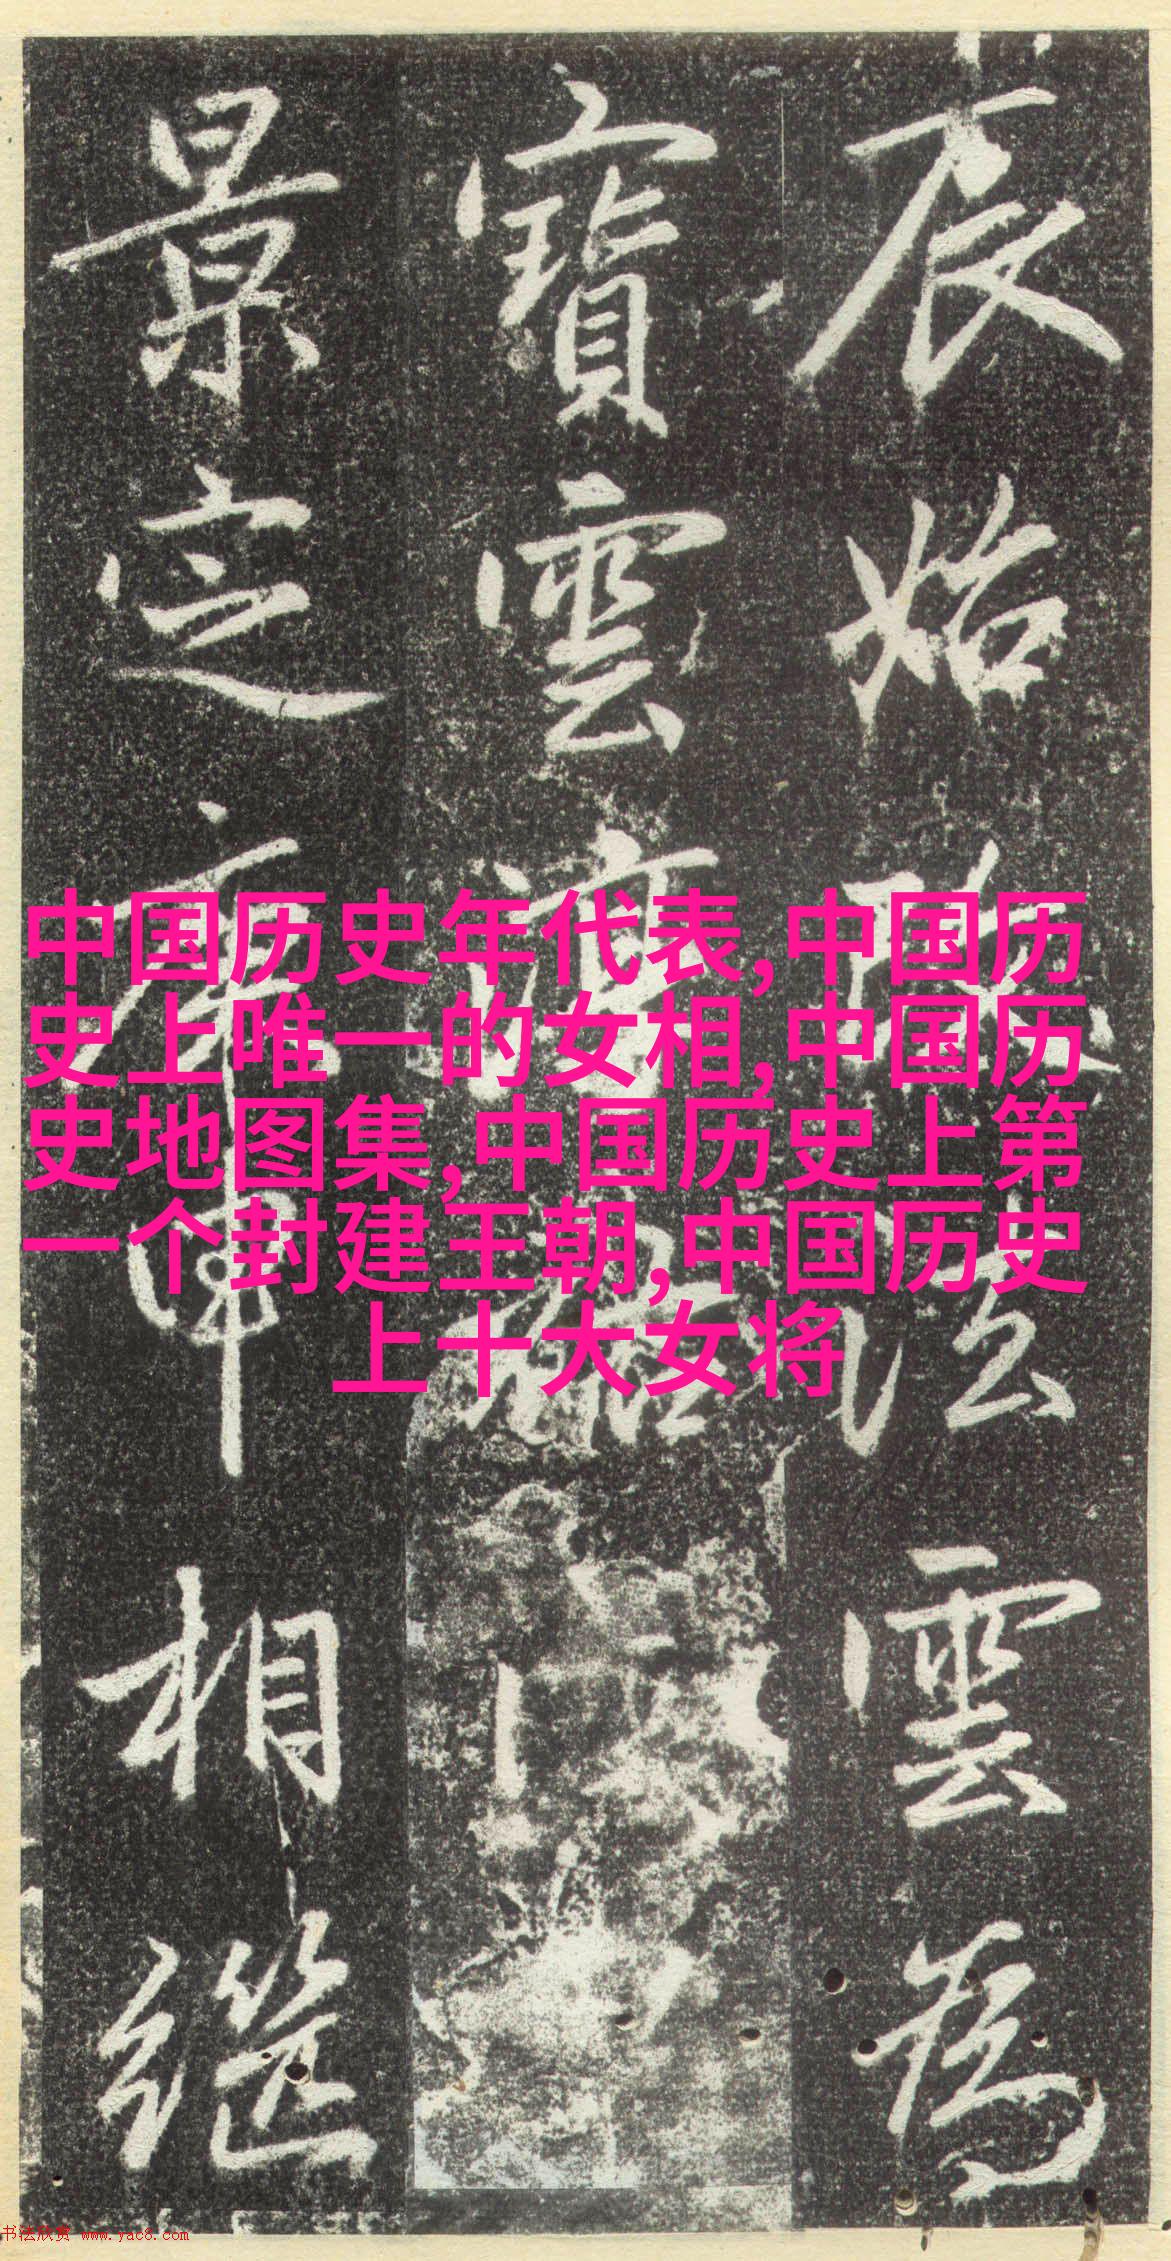 辰始法雲為
寶雲
景定庚申相繼
中国历史年代表,中国历
史上唯一的女相,中国历
史地图集,中国历史上第
一个封建王朝,中国历史
上十大女将
书法欣赏 www.yac8.com